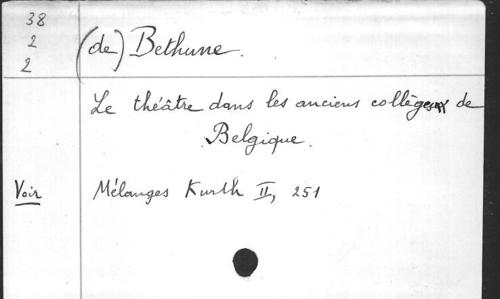 38
2
2
(de) Bethune.
Le théâtre dans les anciens collèges de
Belgique.
Voir
Mélanges Kurth II, 251